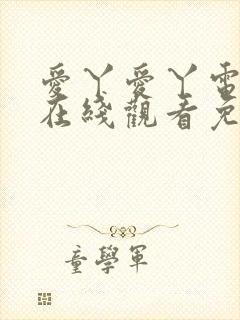 愛丫愛丫電
在綫觀看免
童學軍